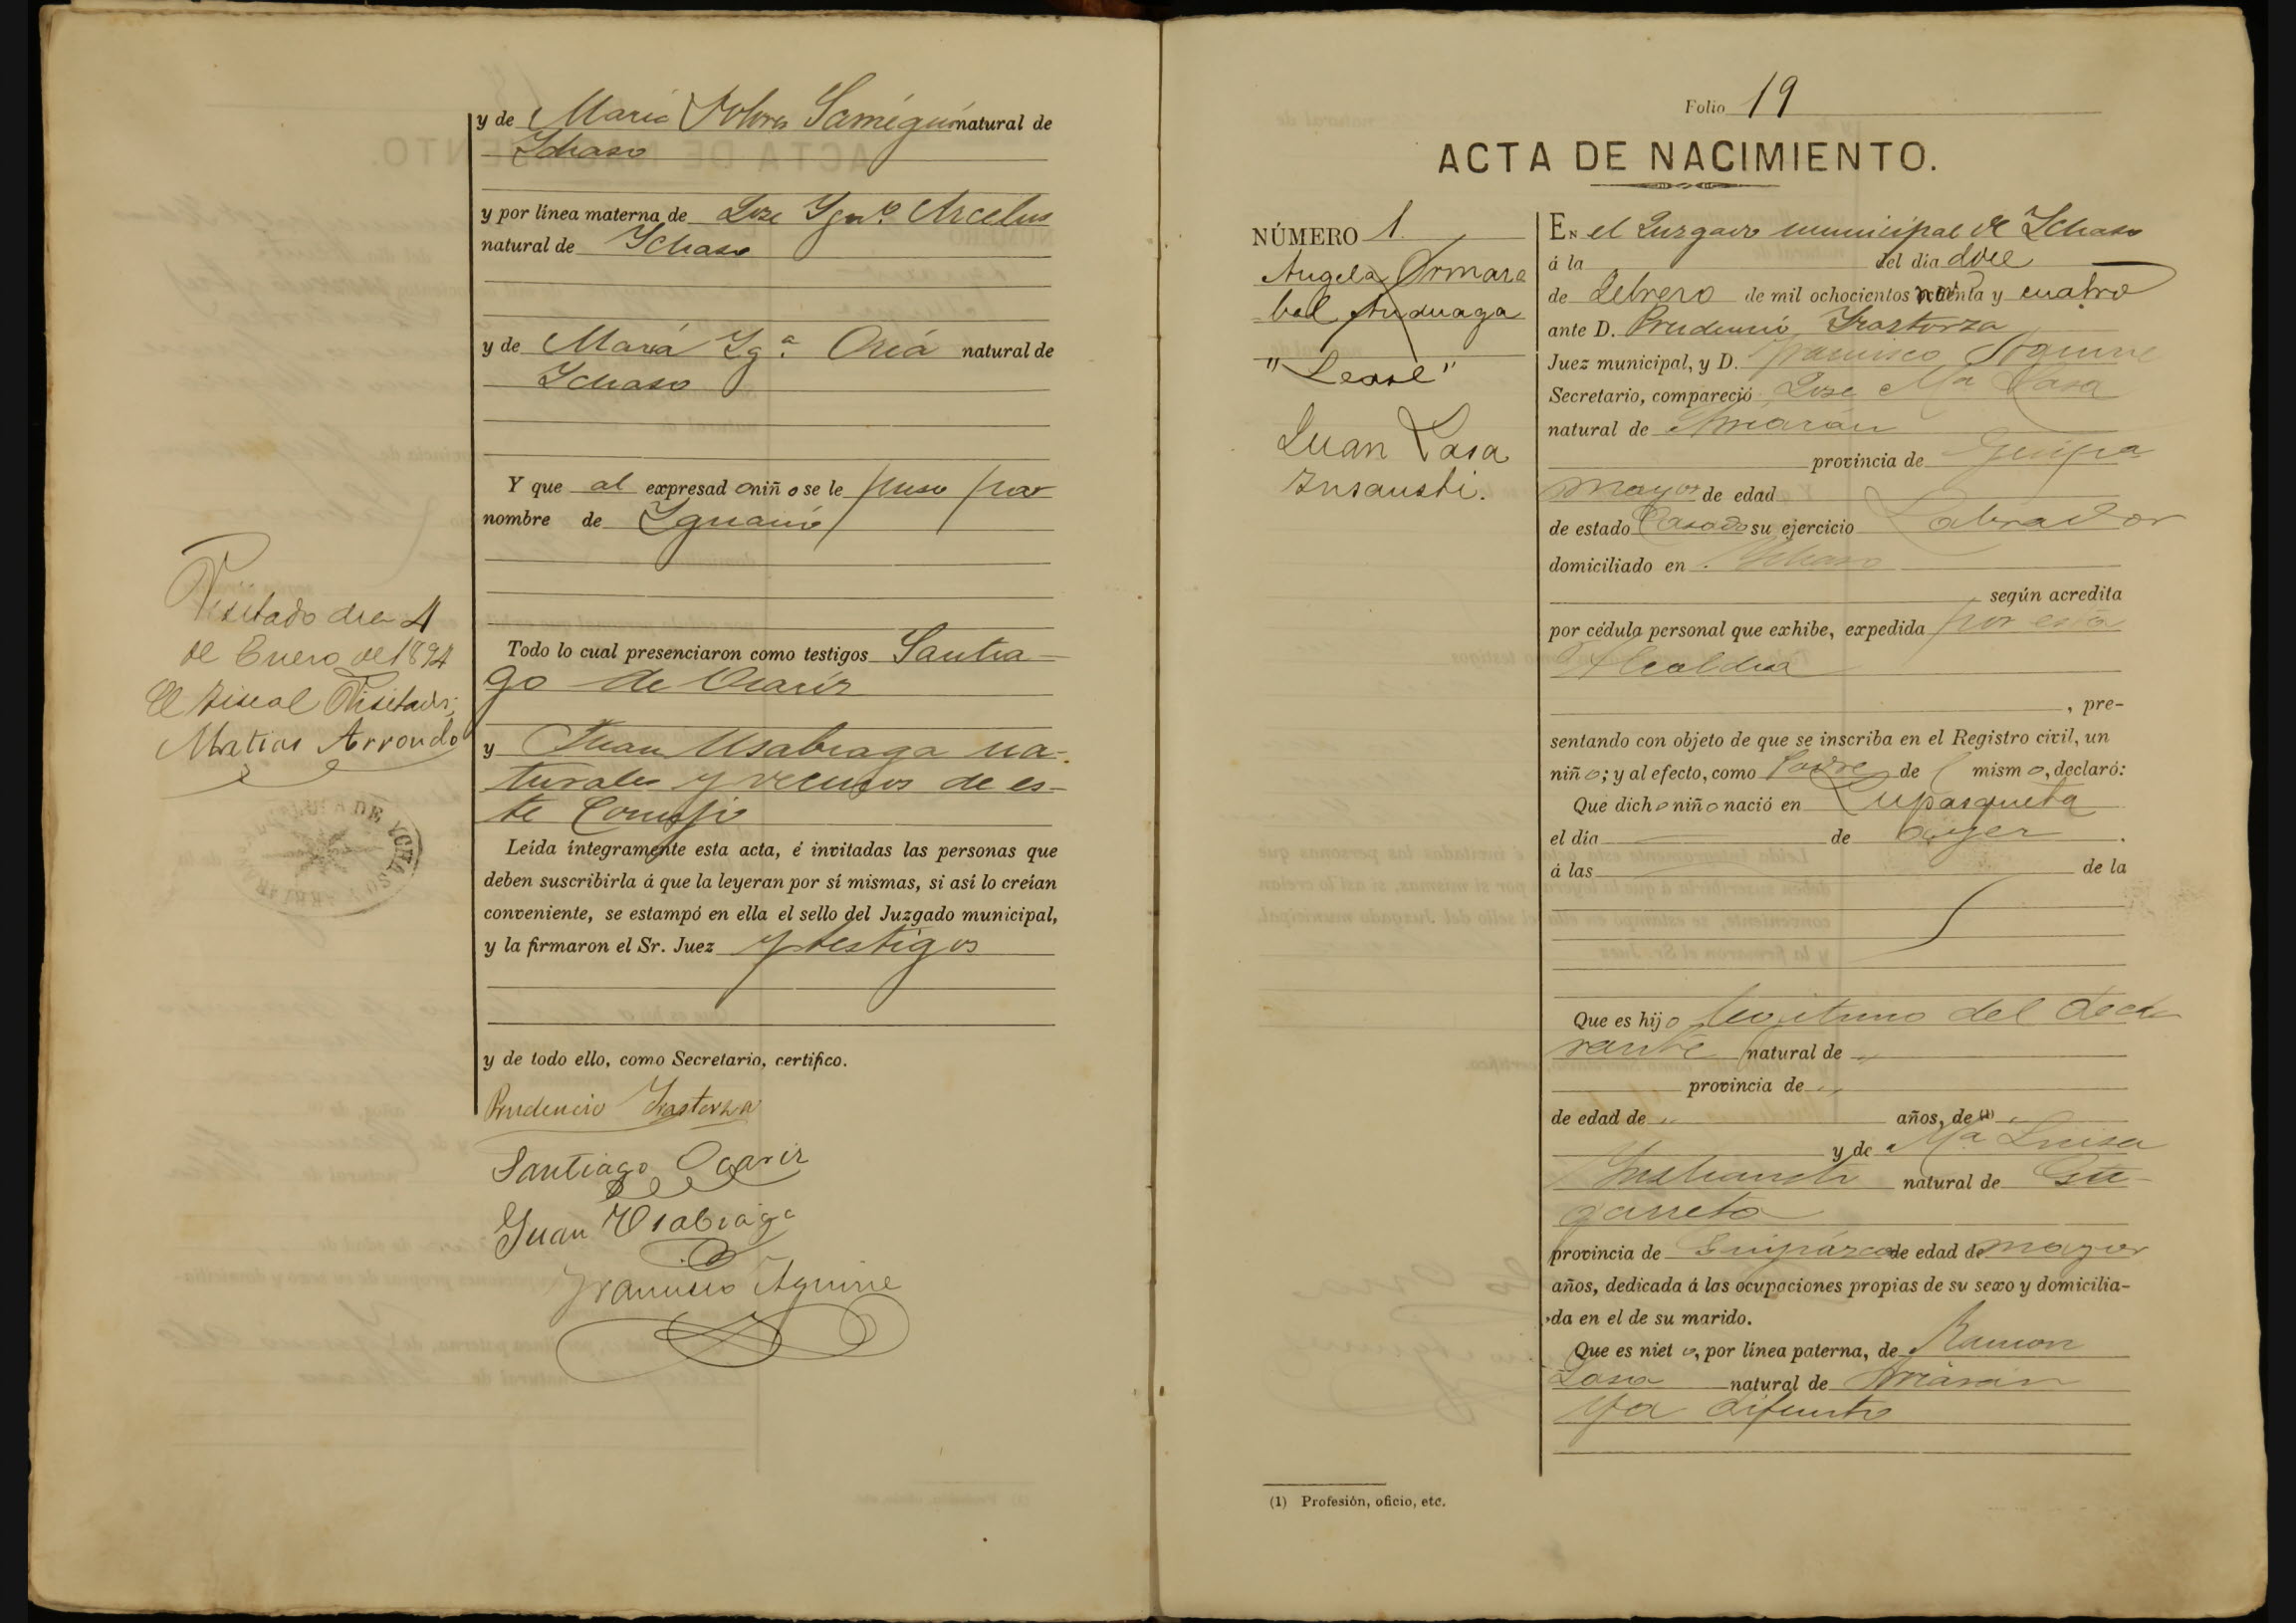 y de Maria Dolores Sarriegui natural de
Ichaso
y por línea materna de Jose Ygn.º Arcelus
natural de Ichaso
y de María Yg.ª Oria natural de
Ichaso
Y que al expresado niño se le puso por
nombre de Ygnacio
Todo lo cual presenciaron como testigos Santia-
go de Ocariz
y Juan Usabiaga na-
turales y vecinos de es-
te Concejo
Leída íntegramente esta acta, é invitadas las personas que
deben suscribirla á que la leyeran por sí mismas, si así lo creían
conveniente, se estampó en ella el sello del Juzgado municipal,
y la firmaron el Sr. Juez y testigos
y de todo ello, como Secretario, certifico.
Prudencio Irastorza
Santiago Ocariz
Juan Usabiaga
Francisco Aguirre
Visitado dia 4
de Enero de 1894
El Fiscal Visitador;
Matias Arrondo
Folio 19
ACTA DE NACIMIENTO.
NÚMERO 1
Angela Ormaza
bal Anduaga
"Lease"
Juan Lasa
Insausti.
En el Juzgado municipal de Ichaso
á la del dia doce
de Febrero de mil ochocientos noventa y cuatro
ante D. Prudencio Irastorza
Juez municipal, y D. Francisco Aguirre
Secretario, compareció Jose Mª Lasa
natural de Arriarán
provincia de Guipª
mayor de edad
de estado Casado su ejercicio Labrador
domiciliado en Ichaso
según acredita
por cédula personal que exhibe, expedida por esta
Alcaldia
, pre-
sentando con objeto de que se inscriba en el Registro civil, un
niño; y al efecto, como Padre del mismo, declaró:
Que dicho niño nació en
el día de ayer.
á las de la
Que es hijo legitimo del decla
rante natural de "
provincia de "
de edad de " años, de (1) "
y de Mª Luisa
Insausti natural de Gu-
garreta
provincia de Guipúzcoa de edad de mayor
años, dedicada á las ocupaciones propias de su sexo y domicilia-
da en el de su marido.
Que es nieto, por línea paterna, de Ramon
Lasa natural de Arriarán
ya difunto
(1) Profesión, oficio, etc.